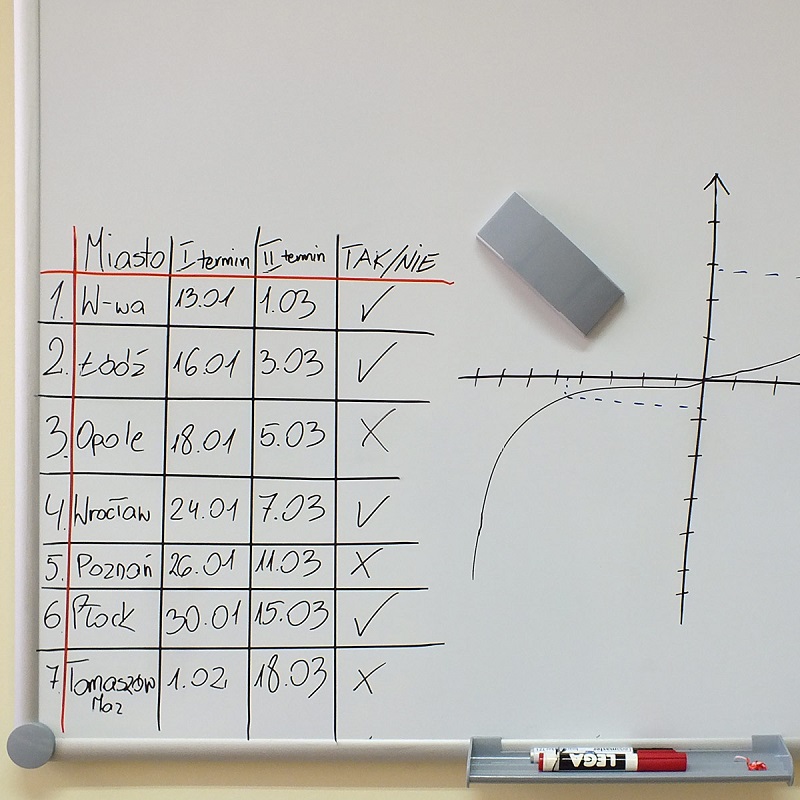 Miasto I termin II termin TAK/NIE
1. W-wa 13.01 1.03 ✓
2. Łódź 16.01 3.03 ✓
3. Opole 18.01 5.03 X
4. Wrocław 24.01 7.03 ✓
5. Poznań 26.01 11.03 X
6 Płock 30.01 15.03 ✓
7. Tomaszów 1.02 18.03 X
Maz
LEGA